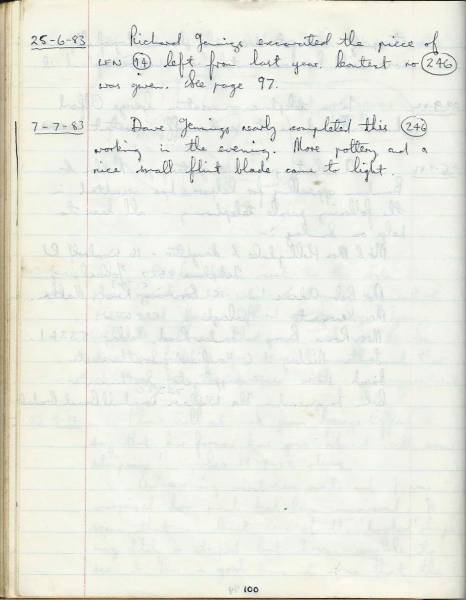 25-6-83 Richard Jennings excavated the piece of
LEN 14 left from last year. Context no 246
was given. See page 97.
7-7-83 Dave Jennings nearly completed this 246
working in the evening. More pottery and a
nice small flint blade came to light.
100